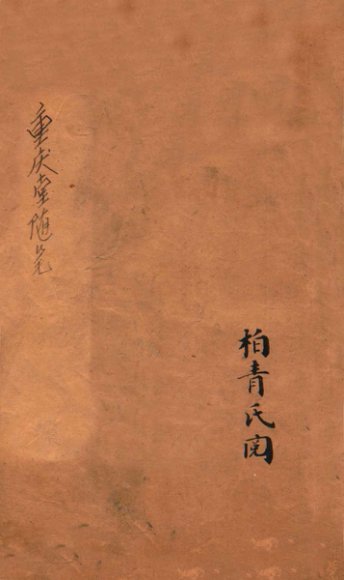 柏青氏阅
重庆堂随笔